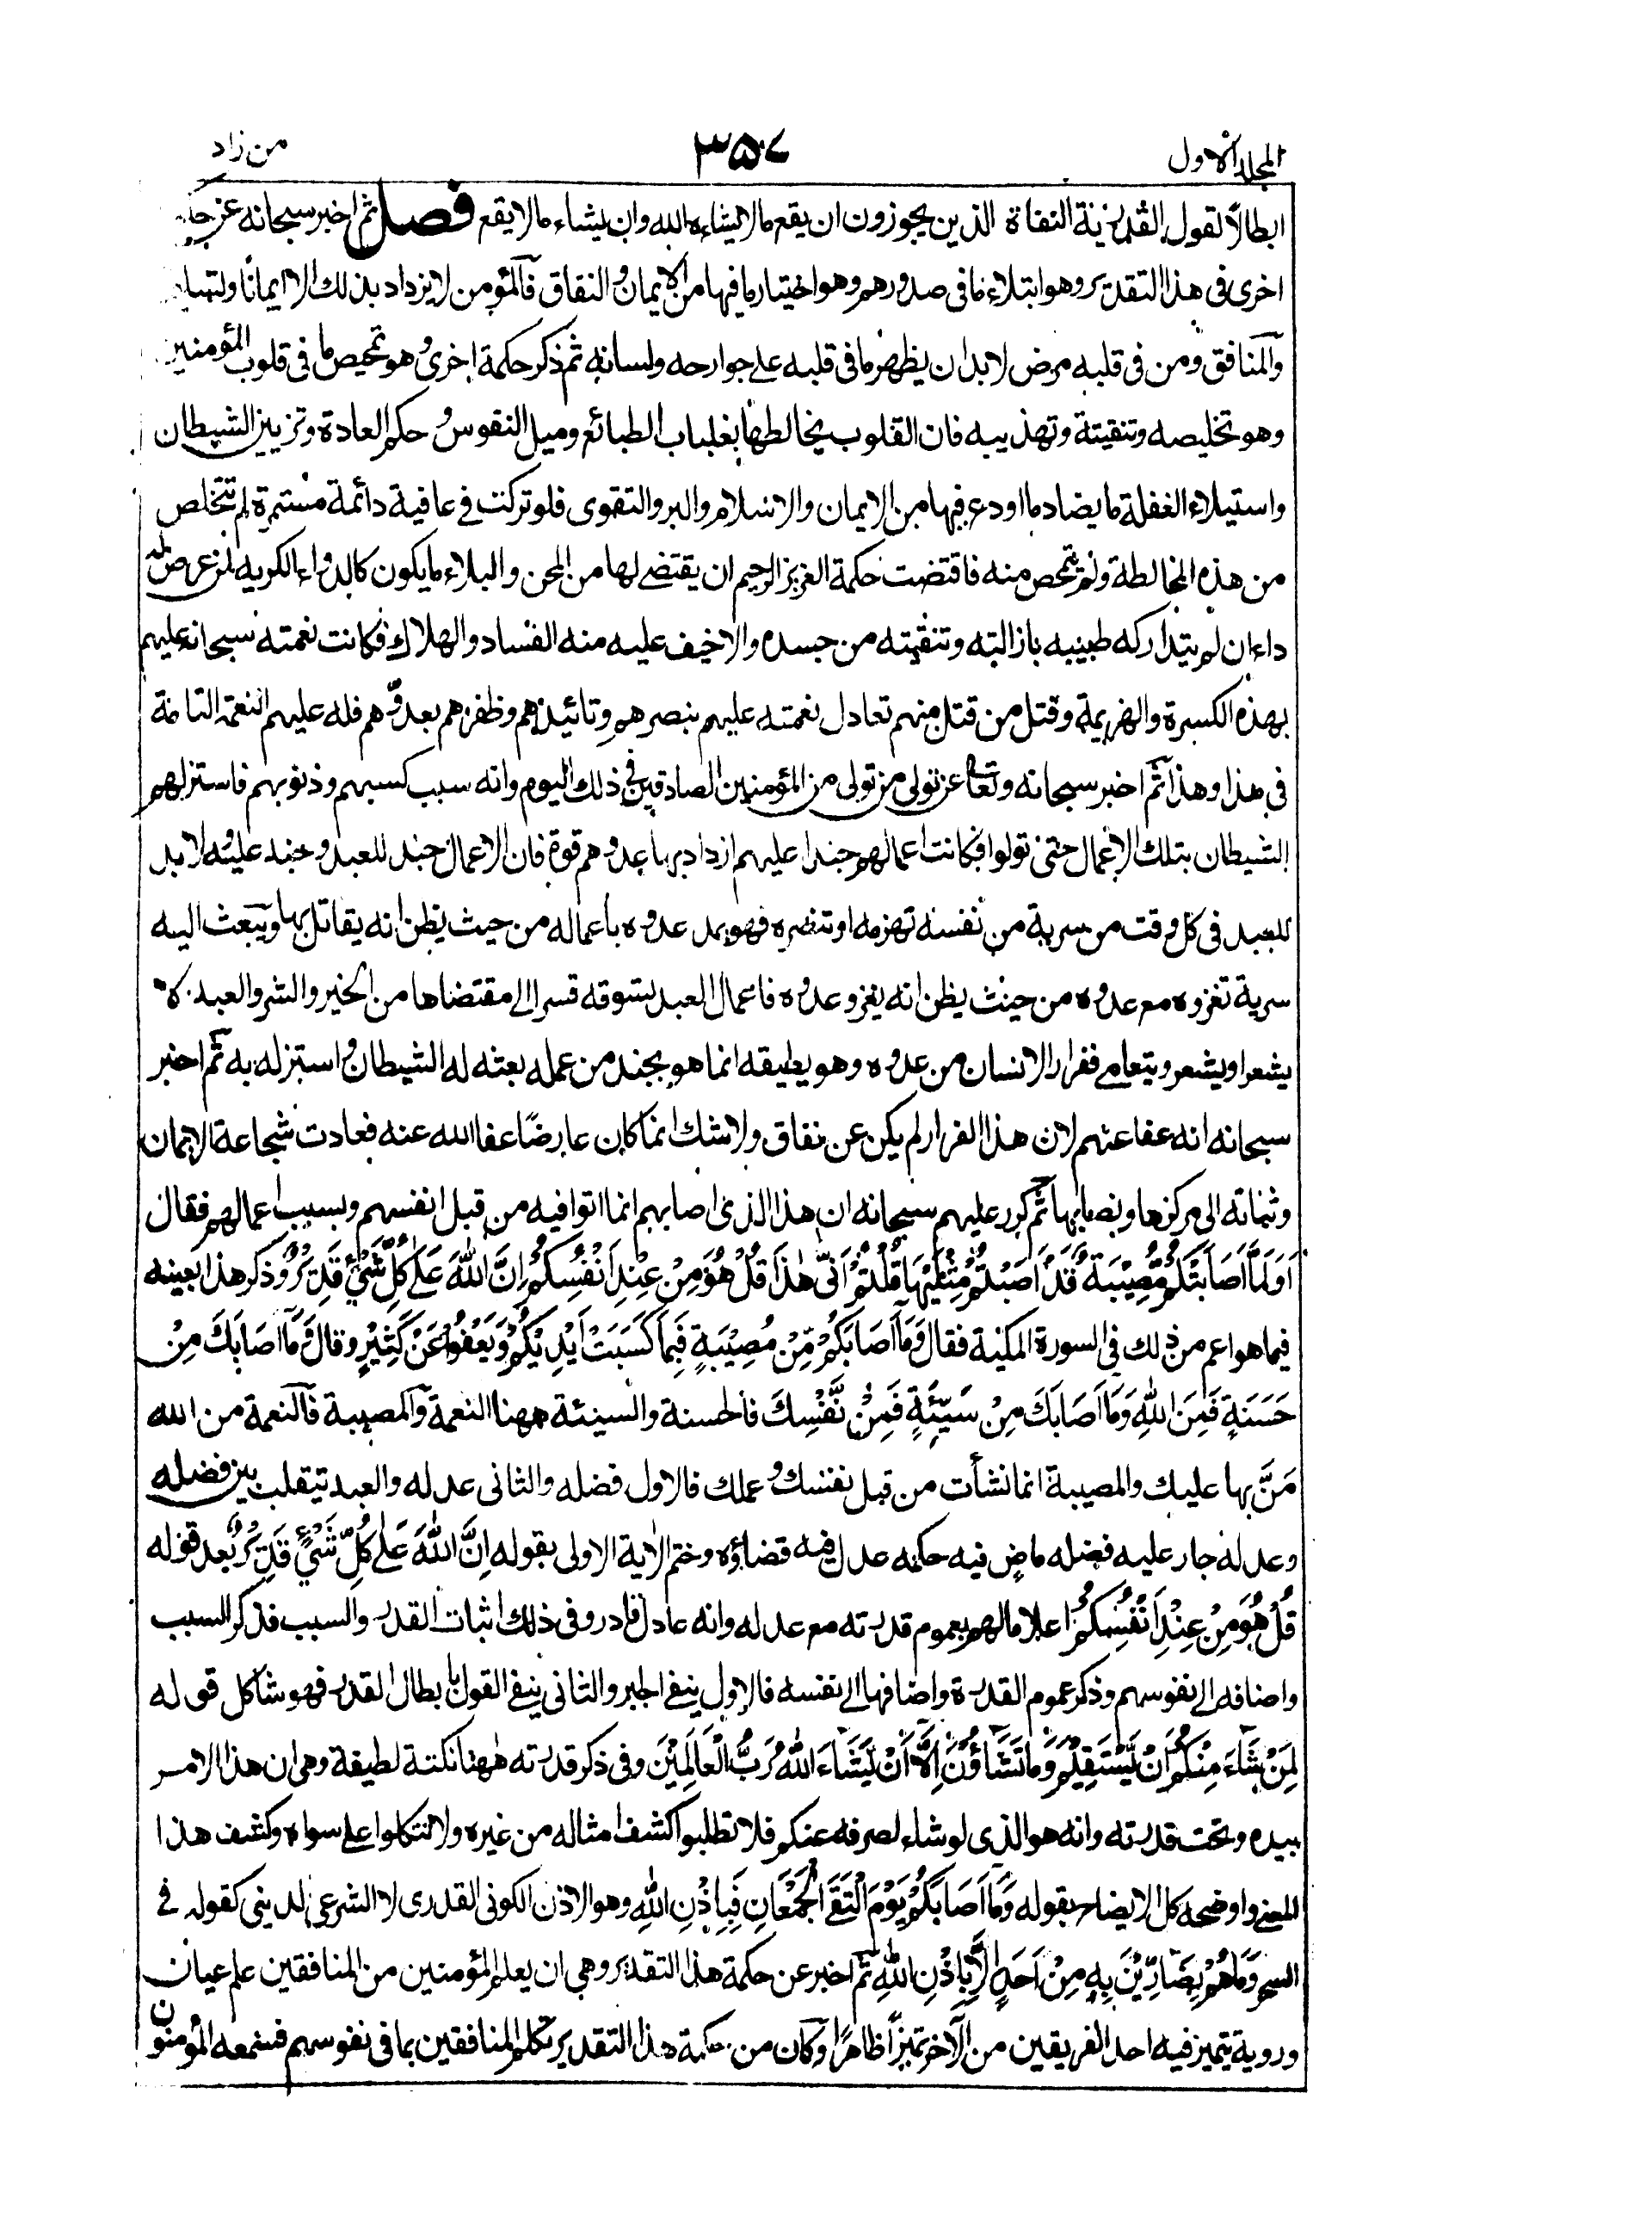 المجلد الاول
٣٥٧
من زاد
ابطالا لقول القدرية النفاة الذين يجوزون ان يقع مالا يشاءه الله وان يشاء مالا يقع فصل ثم اخبر سبحانه عن حكمة
اخرى فى هذا التقدير وهو ابتلاء ما فى صدورهم وهو اختيار ما فيها من الايمان والنفاق فالمؤمن لا يزداد بذلك الا ايمانا وتسليما
والمنافق ومن فى قلبه مرض لابد ان يظهر ما فى قلبه على جوارحه ولسانه ثم ذكر حكمة اخرى وهو تمحيص ما فى قلوب المؤمنين
وهو تخليصه وتنقيته وتهذيبه فان القلوب يخالطها بغلبات الطبائع وميل النفوس وحكم العادة وتزيين الشيطان
واستيلاء الغفلة ما يضاد ما اودع فيها من الايمان والاسلام والبر والتقوى فلو تركت فى عافية دائمة مستمرة لم تتخلص
من هذه المخالطة ولم تتمحص منه فاقتضت حكمة العزيز الرحيم ان يقتضے لها من المحن والبلاء ما يكون كالدواء الكريه لمن عرض له
داء ان لم يتداركه طبيبه بازالته وتنقيته من جسده والا خيف عليه منه الفساد والهلاك فكانت نعمته سبحانه عليهم
بهذه الكسرة والهزيمة وقتل من قتل منهم تعادل نعمته عليهم بنصرهم وتائيدهم وظفرهم بعدوهم فله عليهم النعمة التامة
فى هذا وهذا ثم اخبر سبحانه وتعالى عن تولى من تولى من المؤمنين الصادقين فى ذلك اليوم وانه سبب كسبهم وذنوبهم فاستزلهم
الشيطان بتلك الاعمال حتى تولوا فكانت اعمالهم جندا عليهم ازداد بها عدوهم قوة فان الاعمال جند للعبد وجند عليه ولابد
للعبد فى كل وقت من سرية من نفسه تهزمه او تنصره فهو يمد عدوه باعماله من حيث يظن انه يقاتل بها ويبعث اليه
سرية تغزوه مع عدوه من حيث يظن انه يغزو عدوه فاعمال العبد تسوقه قسرا الى مقتضاها من الخير والشر والعبد لا
يشعر او يشعر ويتعامى ففرار الانسان من عدوه وهو يطيقه انما هو بجند من عمله بعثه له الشيطان واستزله به ثم اخبر
سبحانه انه عفا عنهم لان هذا الفرار لم يكن عن نفاق ولا شك انما كان عارضا عفا الله عنه فعادت شجاعة الايمان
وثباته الى مركزها ونصابها ثم كرر عليهم سبحانه ان هذا الذى اصابهم انما اتوا فيه من قبل انفسهم وبسبب اعمالهم فقال
اَوَلَمَّا اَصَابَتْكُمْ مُّصِيْبَةٌ قَدْ اَصَبْتُمْ مِّثْلَيْهَا قُلْتُمْ اَنّٰى هٰذَا قُلْ هُوَ مِنْ عِنْدِ اَنْفُسِكُمْ اِنَّ اللّٰهَ عَلٰى كُلِّ شَيْءٍ قَدِيْرٌ وذكر هذا بعينه
فيما هو اعم من ذلك فى السورة المكية فقال وَمَا اَصَابَكُمْ مِّنْ مُصِيْبَةٍ فَبِمَا كَسَبَتْ اَيْدِيْكُمْ وَيَعْفُوْا عَنْ كَثِيْرٍ وقال وَمَا اَصَابَكَ مِنْ
حَسَنَةٍ فَمِنَ اللّٰهِ وَمَا اَصَابَكَ مِنْ سَيِّئَةٍ فَمِنْ نَّفْسِكَ فالحسنة والسيئة ههنا النعمة والمصيبة فالنعمة من الله
مَنَّ بها عليك والمصيبة انما نشأت من قبل نفسك وعملك فالاول فضله والثانى عدله والعبد يتقلب بين فضله
وعدله جار عليه فضله ماض فيه حكمه عدل فيه قضاؤه وختم الاية الاولى بقوله اِنَّ اللّٰهَ عَلٰى كُلِّ شَيْءٍ قَدِيْرٌ بعد قوله
قُلْ هُوَ مِنْ عِنْدِ اَنْفُسِكُمْ اعلاما لهم بعموم قدرته مع عدله وانه عادل قادر وفى ذلك اثبات القدر والسبب فذكر السبب
واضافه الى نفوسهم وذكر عموم القدرة واضافها الى نفسه فالاول ينفى الجبر والثانى ينفى القول بابطال القدر فهو شاكل قوله
لِمَنْ شَاءَ مِنْكُمْ اَنْ يَّسْتَقِيْمَ وَمَا تَشَاؤُنَ اِلَّا اَنْ يَّشَاءَ اللّٰهُ رَبُّ الْعَالَمِيْنَ وفى ذكر قدرته ههنا نكتة لطيفة وهى ان هذا الامر
بيده وتحت قدرته وانه هو الذى لو شاء لصرفه عنكم فلا تطلبوا كشف امثاله من غيره ولا تتكلوا على سواه وكشف هذا
المعنى واوضحه كل الايضاح بقوله وَمَا اَصَابَكُمْ يَوْمَ الْتَقَى الْجَمْعَانِ فَبِاِذْنِ اللّٰهِ وهو الاذن الكونى القدرى لا الشرعى الدينى كقوله فى
السحر وَمَا هُمْ بِضَارِّيْنَ بِهٖ مِنْ اَحَدٍ اِلَّا بِاِذْنِ اللّٰهِ ثم اخبر عن حكمة هذا التقدير وهى ان يعلم المؤمنين من المنافقين علم عيان
وروية يتميز فيه احد الفريقين من الآخر تميزا ظاهرا وكان من حكمة هذا التقدير تكلم المنافقين بما فى نفوسهم فسمعه المؤمنون